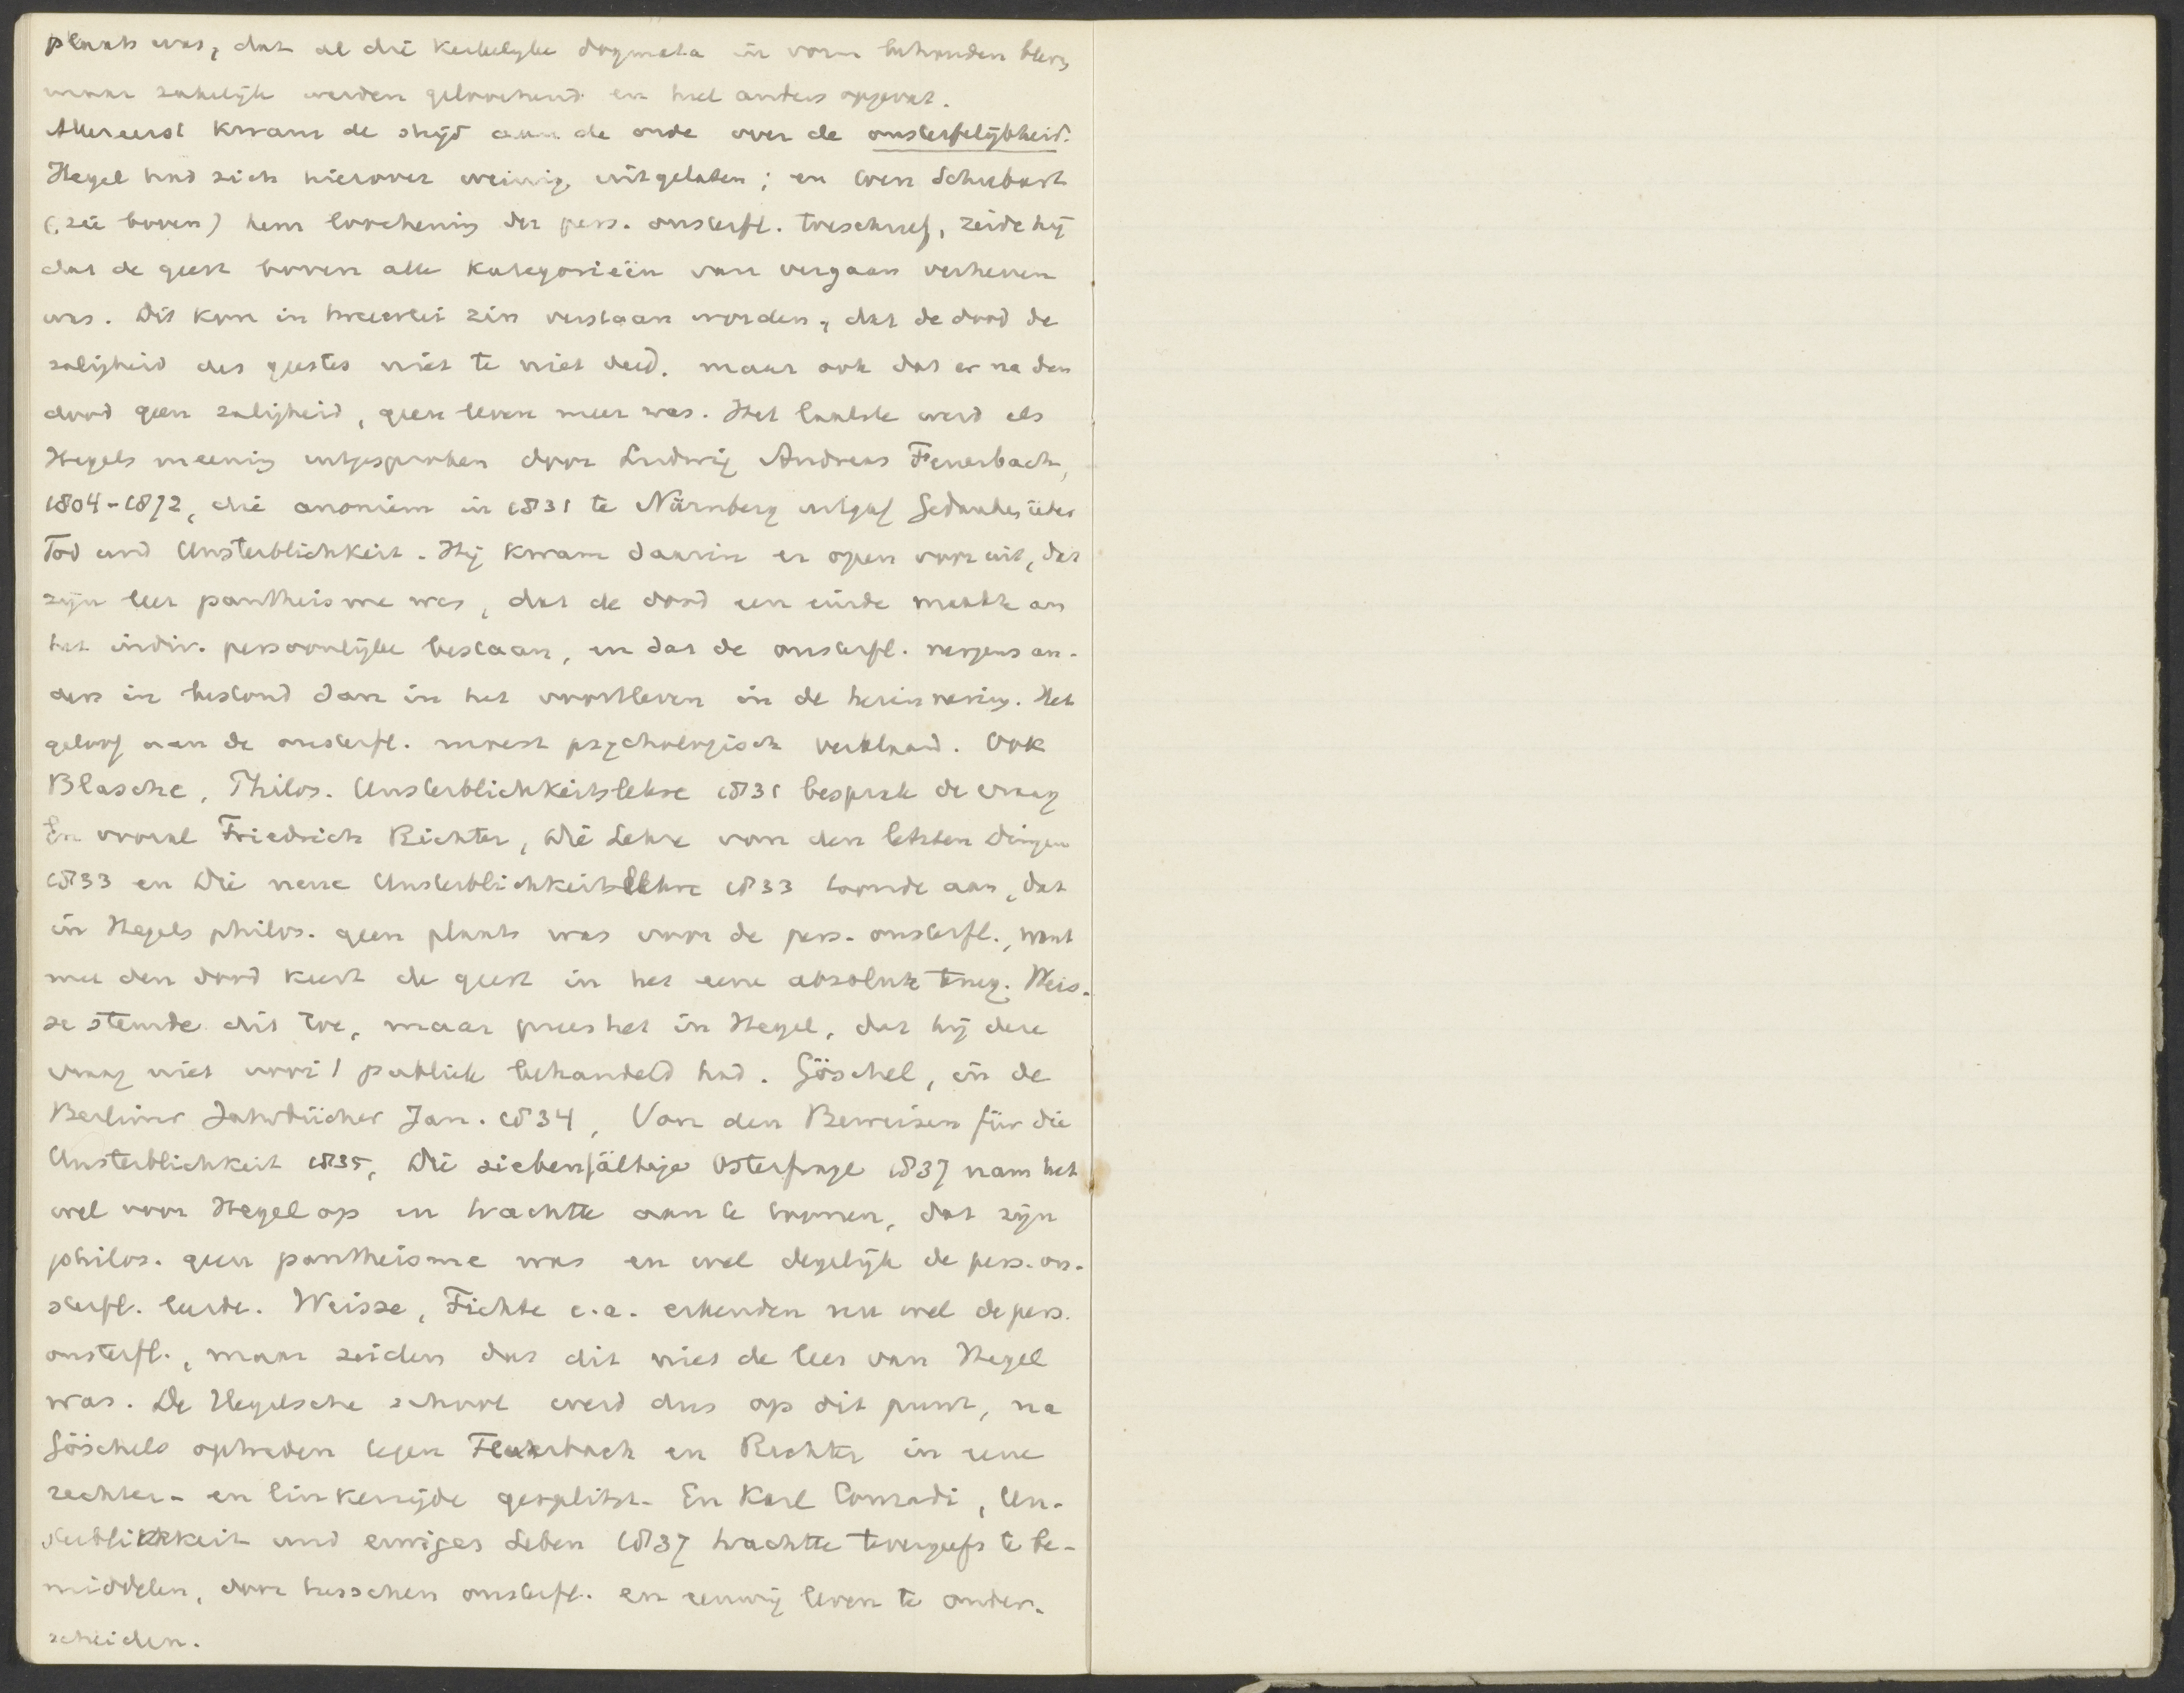 plaats was, dat al die kerkelyke dogmata in vorm behouden bleven
maar zakelijk werden geloochend en heel anders opgevat.
Allereerst kwam de strijd aan de orde over de onsterfelijkheid.
Hegel had zich hierover weinig uitgelaten; en toen Schubart
(zie boven) hem loochening der pers. onsterfl. toeschreef, zeide hij
dat de geest boven alle kategorieën van vergaan verheven
was. Dit kon in tweeërlei zin verstaan worden, dat de dood de
zaligheid des geestes niet te niet deed, maar ook dat er na den
dood geen zaligheid, geen leven meer was. Het laatste werd als
Hegels meening uitgesproken door Ludwig Andreas Feuerbach,
1804-1872, die anoniem in 1831 te Nürnberg uitgaf Gedanken über
Tod und Unsterblichkeit. Hij kwam daarin er open voor uit, dat
zijn leer pantheisme was, dat de dood een einde maakte aan
het indiv. persoonlijke bestaan, en dat de onsterfl. nergens an-
ders in bestond dan in het voortleven in de herinnering. Het
geloof aan de onsterfl. moest psychologisch verklaard. Ook
Blasche, Philos. Unsterblichkeitslehre 1831 besprak de vraag
En vooral Friedrich Richter, Die Lehre von den letzten Dingen
1833 en Die neue Unsterblichkeitslehre 1833 toonde aan, dat
in Hegels philos. geen plaats was voor de pers. onsterfl., want
met den dood keert de geest in het eene absolute terug. Weis-
se stemde dit toe, maar prees het in Hegel, dat hij deze
vraag niet voor 't publiek behandeld had. Göschel, in de
Berliner Jahrbücher Jan. 1834, Von den Beweisen für die
Unsterblichkeit 1835, Die siebenfältige Osterfrage 1837 nam het
wel voor Hegel op en trachtte aan te toonen, dat zijn
philos. geen pantheisme was en wel degelijk de pers. on-
sterfl. leerde. Weisse, Fichte e.a. erkenden nu wel de pers.
onsterfl., maar zeiden dat dit niet de leer van Hegel
was. De Hegelsche school werd dus op dit punt, na
Göschels optreden tegen Feuerbach en Richter in eene
rechter- en linkerzijde gesplitst. En Karl Conradi, Un-
sterblichkeit und ewiges Leben 1837 trachtte tevergeefs te be-
middelen, door tusschen onsterfl. en eeuwig leven te onder-
scheiden.